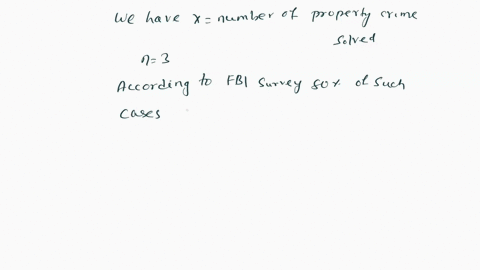 We have x = number of property crime
solved
n=3
According to FBI survey 80% of such
cases